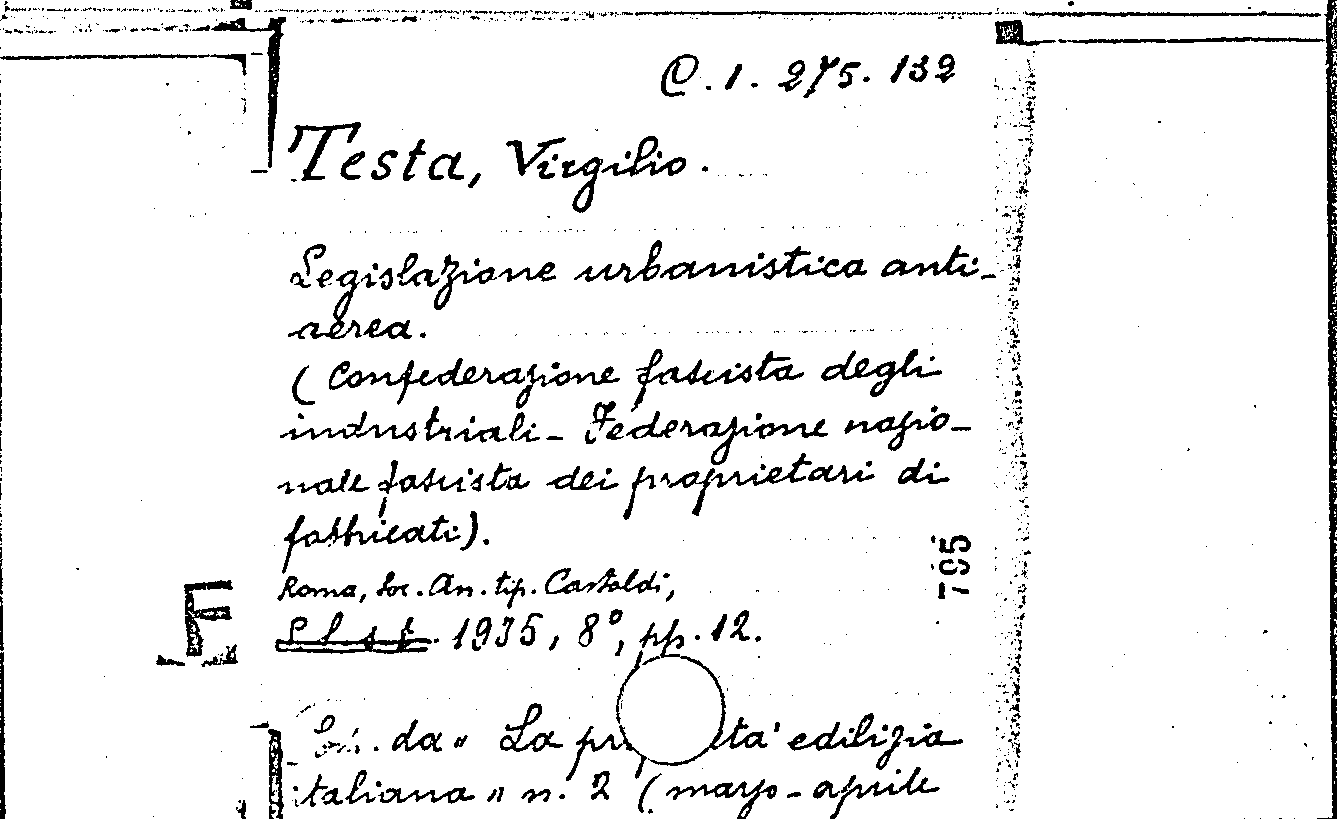 C.1.275.132
Testa, Virgilio.
Legislazione urbanistica anti-
aerea.
(Confederazione fascista degli
industriali - Federazione nazio-
nale fascista dei proprietari di
fabbricati).
Roma, Soc. An. tip. Castaldi,
1935, 8°, pp. 12.
da " La edilizia
italiana " n. 2 (marzo - aprile
795
F